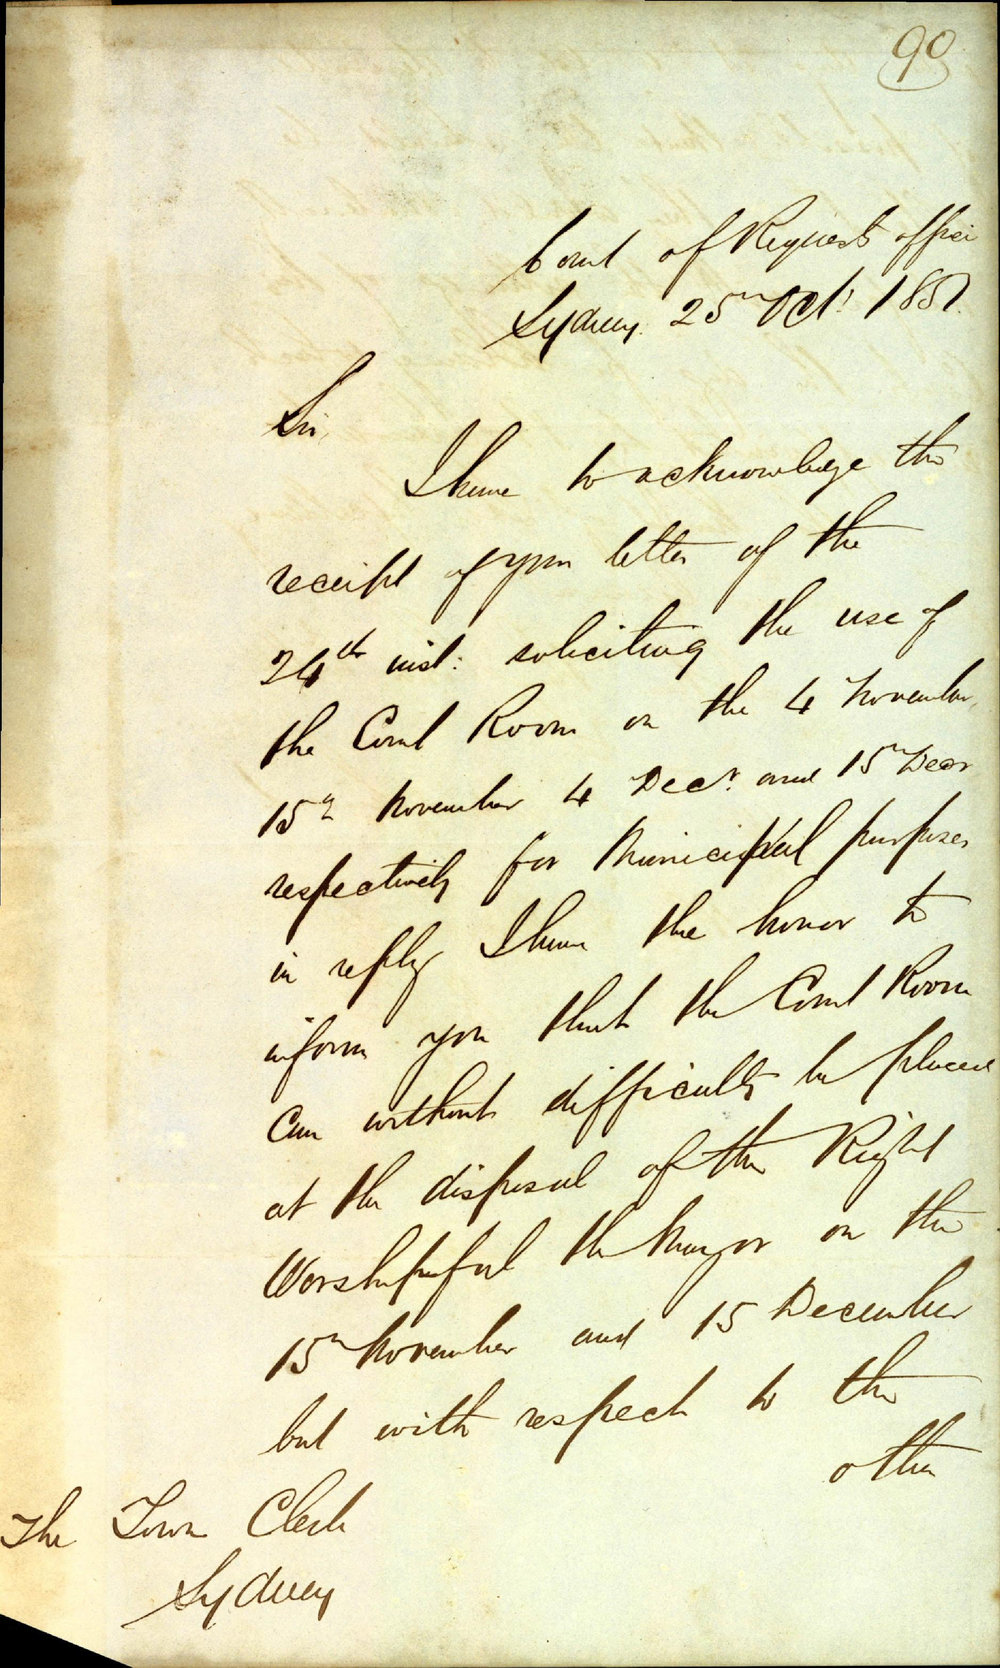 90
Court of Requests office
Sydney. 25th Oct: 1857.
Sir,
I have to acknowledge the
receipt of your letter of the
24th inst: soliciting the use of
the Court Room on the 4 November,
15th November 4 Decr. and 15th Decr
respectively for Municipal purposes
in reply I have the honor to
inform you that the Court Room
can without difficulty be placed
at the disposal of the Right
Worshipful the Mayor on the
15th November and 15 December
but with respect to the
other
The Town Clerk
Sydney